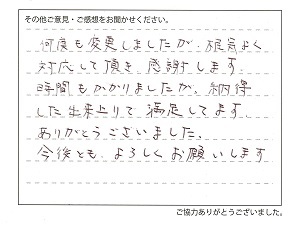 その他ご意見・ご感想をお聞かせください。
何度も変更しましたが、根気よく
対応して頂き、感謝します。
時間もかかりましたが、納得
した出来上りで満足してます。
ありがとうございました。
今後とも、よろしくお願いします
ご協力ありがとうございました。